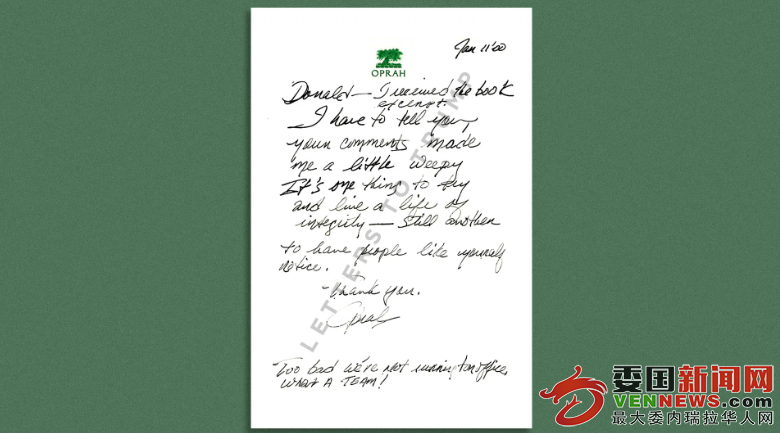 Jan 11'00
OPRAH
Donald — I received the book
excerpt.
I have to tell you,
your comments made
me a little weepy
It's one thing to try
and live a life of
integrity — Still another
to have people like yourself
notice.
Thank you.
Oprah
Too bad we're not running for office,
WHAT A TEAM!
LETTERS TO TRUMP
委国新闻网
VENNEWS.COM
最大委内瑞拉华人网